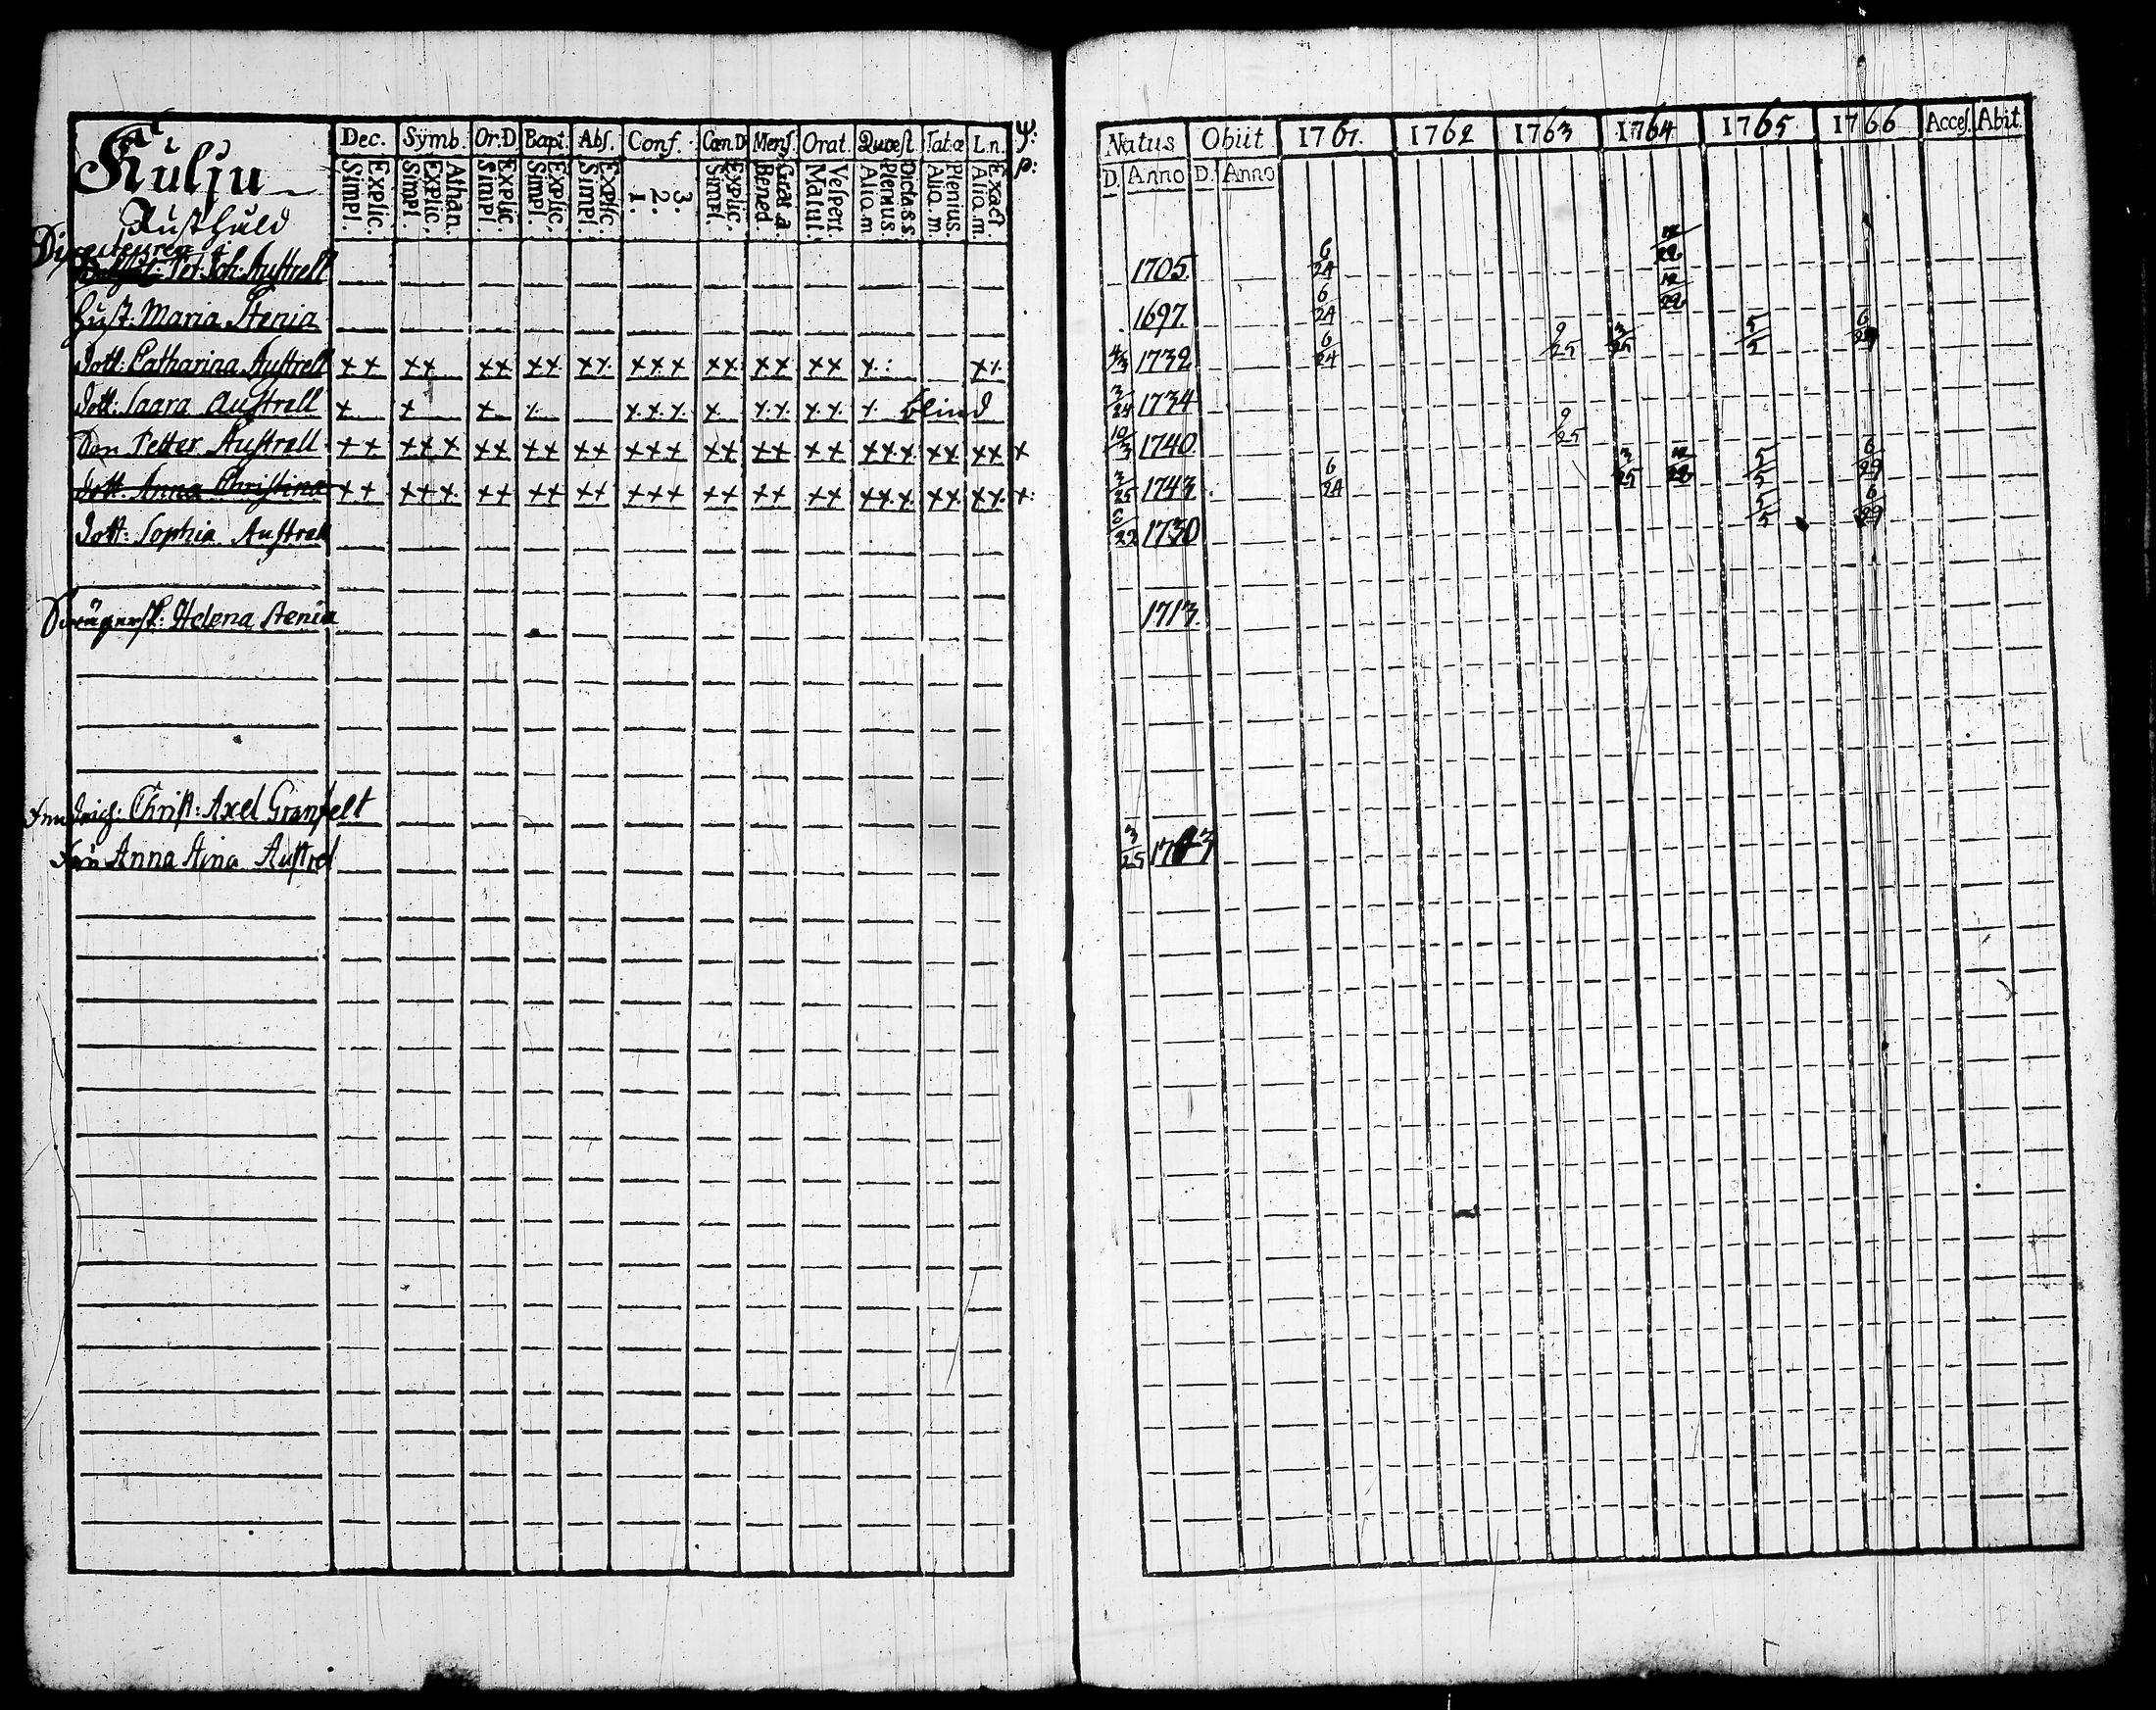 Kulju Dec. Symb. Or.D. Bapt. Abs. Conf. Cœn.D. Mens. Orat. Quæst. Tat.æ L.n. Natus Obiit 1761. 1762 1763 1764 1765. 1766 Acces. Abit
Simpl. Explic. Simpl. Explic. Athan. Simpl. Explic. Simpl. Explic. Simpl. Explic. 1. 2. 3. Simpl. Explic. Bened. Matut. Vespert. Aliq.m Plenius. Aliq.m Plenius. Aliq.m. Exact. D. Anno D. Anno
Rusthåld
Directeuren
Pet: Joh: Austrell 1705. 6/24 12/22
Hust. Maria Stenia 1697. 6/24 12/22
dott: Catharina Austrell ×× ×× ×× ×× ×× ××× ×× ×× ×× ×: ×× 4/3 1732 6/24 9/25 3/25 5/5 6/29
dott: Saara Austrell × × × × ××× × ×× ×× × blind 3/24 1734
Son Petter Austrell ×× ××× ×× ×× ×× ××× ×× ×× ×× ××× ×× ×× × 10/3 1740 9/25
dott. Anna Christina ×× ××× ×× ×× ×× ××× ×× ×× ×× ××× ×× ×× ×: 3/25 1743 6/24 3/25 12/22 5/5 6/29
dott: Sophia Austrell 1730 5/5 6/29
Swägersk: Helena Stenia 1713.
Christ: Axel Granfelt
Fru Anna Stina Austrel 3/25 1743